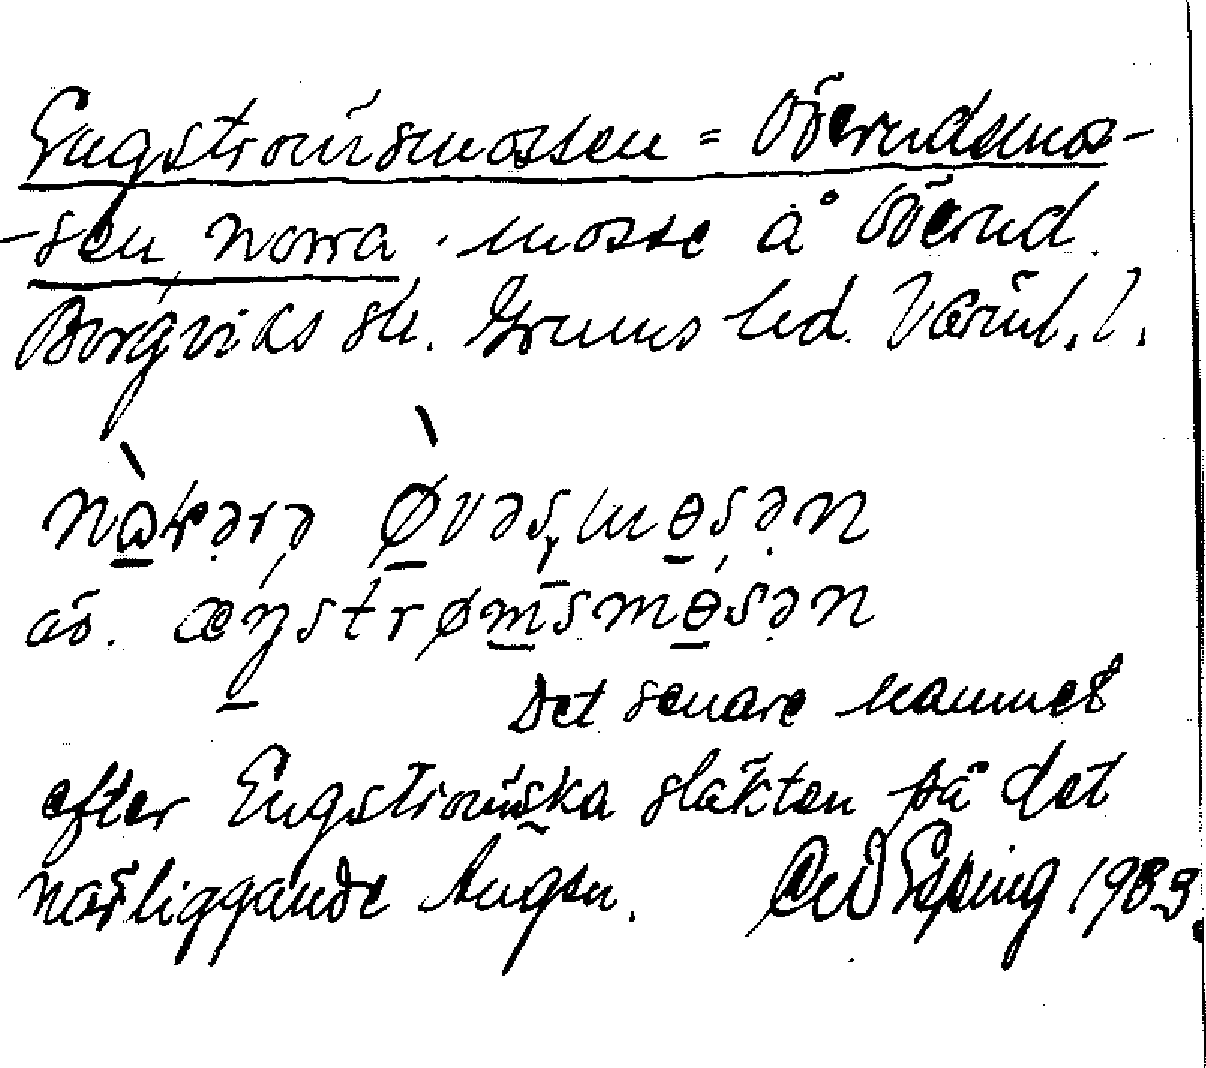 Engströmsmossen = Öjerudsmos-
-sen Norra. mosse å Öjerud.
Borgviks sk. Grums hd. Värml. l.
nɷ̀rərə ø̀vəsmɵsən
äv. æŋstrømsmɵ́sən
Det senare namnet
efter Engströmska släkten på det
närliggande Ängen. Epping 1983.